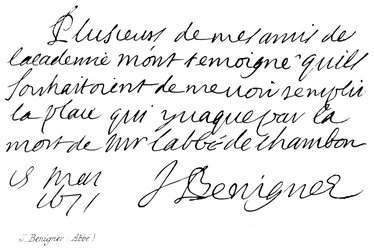 Plusieurs de mes amis de
lacademie m'ont temoigné quils
souhaitoient de me uoir remplir
la place qui y uaque par la
mort de Mr labbé de chambon
18 Mars
1671
J Benigner
J. Benigner (Abbé)